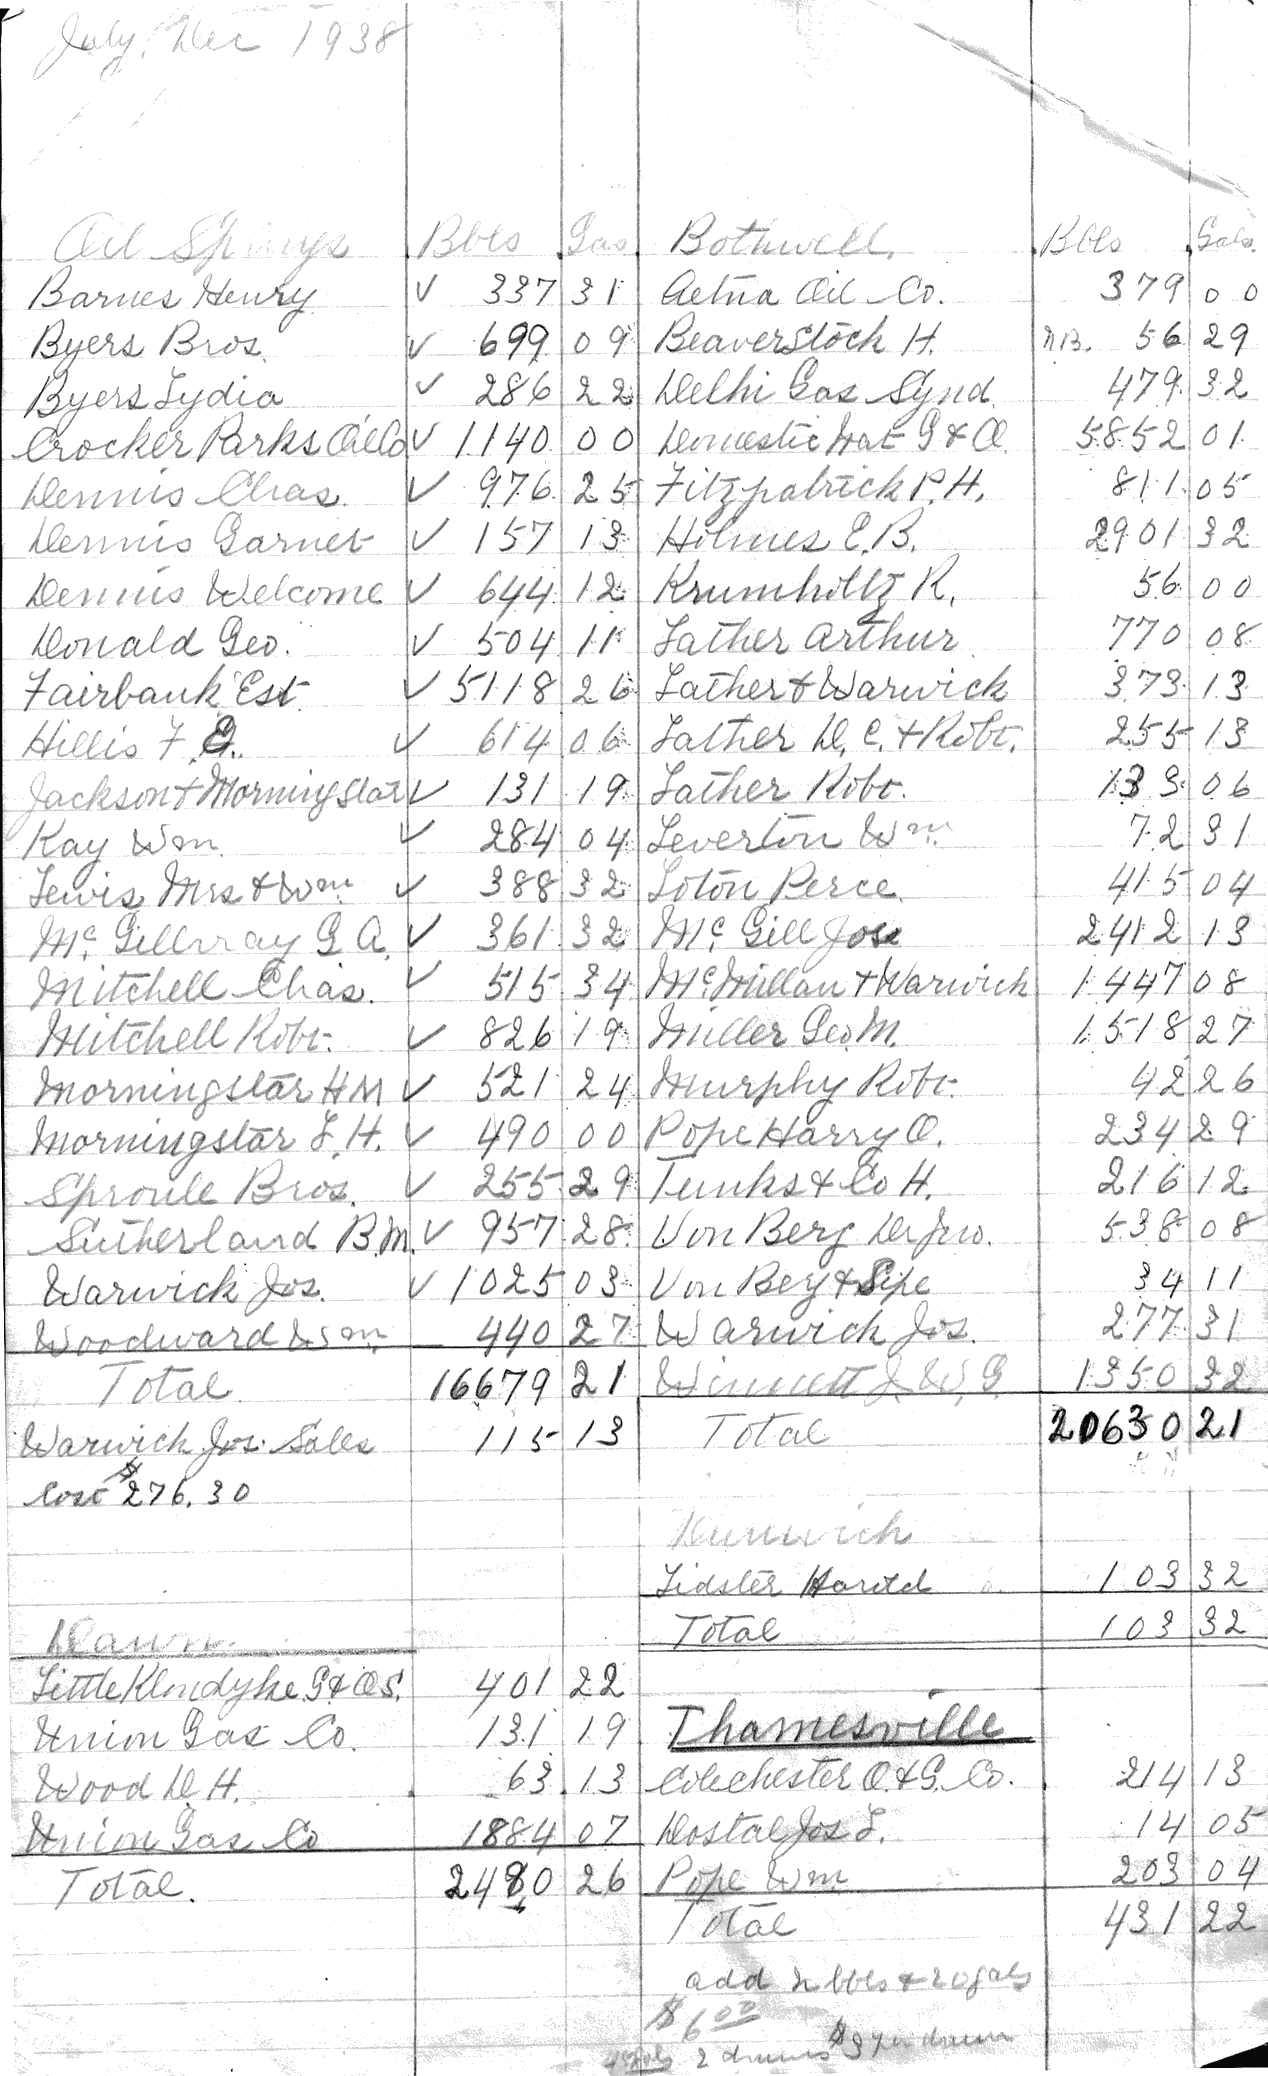 July, Dec 1938
Oil Springs Bbls Gas
Barnes Henry ✓ 337 31
Byers Bros. ✓ 699 09
Byers Lydia ✓ 286 22
Crocker Parks Oil Co ✓ 1140 00
Dennis Chas. ✓ 976 25
Dennis Garnet ✓ 157 13
Dennis Welcome ✓ 644 12
Donald Geo. ✓ 504 11
Fairbank Est. ✓ 5118 26
Hillis F. E. ✓ 614 06
Jackson & Morningstar ✓ 131 19
Kay Wm. ✓ 284 04
Lewis Mrs & Wm. ✓ 388 32
Mc. Gillivray G A. ✓ 361 32
Mitchell Chas. ✓ 515 34
Mitchell Robt. ✓ 826 19
Morningstar H M ✓ 521 24
Morningstar L. H. ✓ 490 00
Sproule Bros. ✓ 255 29
Sutherland B.M. ✓ 957 28
Warwick Jos. ✓ 1025 03
Woodward Wm. 440 27
Total 16679 21
Warwick Jos. Sales 115 13
Cost $276.30
Dawn.
Little Klondyke G & O S. 401 22
Union Gas Co. 131 19
Wood D. H. 63 13
Union Gas Co 1884 07
Total. 2480 26
Bothwell. Bbls Gals.
Aetna Oil Co. 379 00
Beaverstock H. N.B. 56 29
Delhi Gas Synd. 479 32
Domestic Nat G & O 5852 01
Fitzpatrick P. H. 811 05
Holmes E. B. 2901 32
Krumholtz R. 56 00
Lather Arthur 770 08
Lather & Warwick 373 13
Lather D. C. & Robt. 255 13
Lather Robt. 133 06
Leverton Wm. 72 31
Loton Perce 415 04
Mc. Gill Jos 2412 13
McMillan & Warwick 1447 08
Miller Geo. M. 1518 27
Murphy Robt. 42 26
Pope Harry O. 234 29
Tunks & Co H. 216 12
Von Berg Dr Jno. 538 08
Von Bey & Sipe 34 11
Warwick Jos. 277 31
Winnett J. W. G. 1350 32
Total 20630 21
Dunwich
Lidster Harold 103 32
Total 103 32
Thamesville
Colchester O. & G. Co. 214 13
Dostal Jos L. 14 05
Pope Wm 203 04
Total 431 22
add 2 bbls & 20 gals
$6.00
2 drums $3 per drum